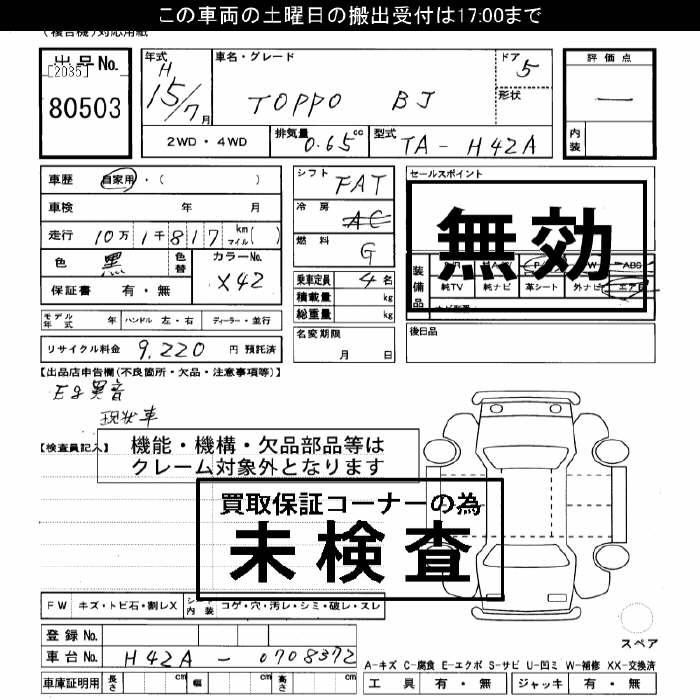 この車両の土曜日の搬出受付は17:00まで
(複合機)対応用紙
出品No.
[2035]
80503
年式
H
15/7月
車名・グレード
TOPPO BJ
ドア
5
形状
評価点
—
内装
2WD・4WD
排気量 0.65 cc
型式 TA-H42A
車歴 自家用・( )
車検 年 月
走行 10万1千817 km マイル( )
色 黒
色替
カラーNo.
X42
保証書 有・無
シフト FAT
冷房 AC
燃料 G
乗車定員 4名
積載量 kg
総重量 kg
セールスポイント
無効
装備品
純TV 純ナビ 革シート 外ナビ エアB
モデル年式 年 ハンドル 左・右 ディーラー・並行
名変期限
月 日
後日品
リサイクル料金 9,220 円 預託済
【出品店申告欄(不良箇所・欠品・注意事項等)】
Eg異音
現状車
【検査員記入】
機能・機構・欠品部品等は
クレーム対象外となります
買取保証コーナーの為
未検査
FW キズ・トビ石・割レX
シート内装 コゲ・穴・汚レ・シミ・破レ・スレ
スペア
登録No.
車台No. H42A-0708372
A-キズ C-腐食 E-エクボ S-サビ U-凹ミ W-補修 XX-交換済
車庫証明用 長さ cm 幅 cm 高さ cm
工具 有・無 ジャッキ 有・無